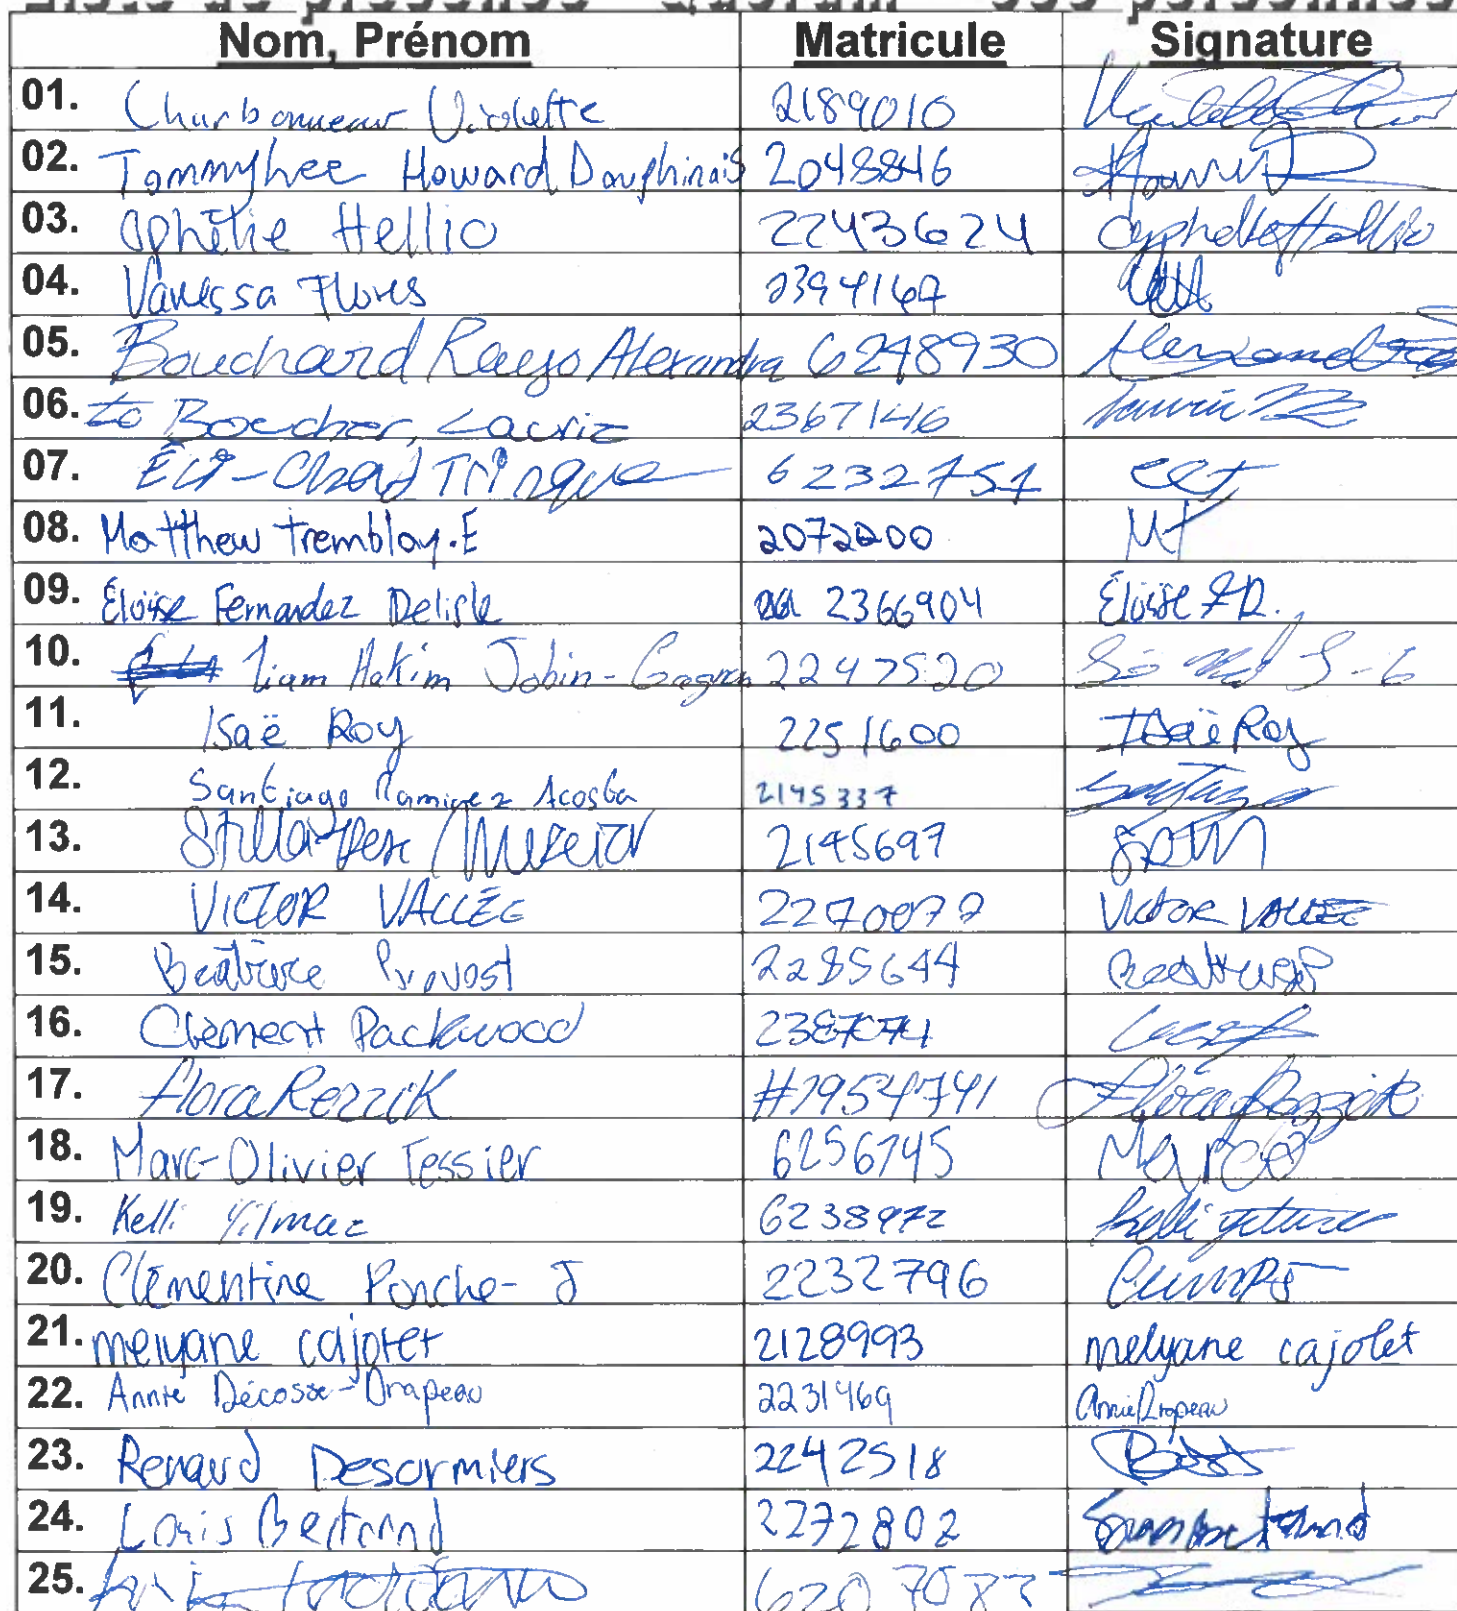 Liste de présence - Quorum
Nom, Prénom Matricule Signature
01. Charbonneau Violette 2189010
02. Tommyhee Howard Dauphinais 2048846
03. Ophélie Hellio 2243624 Ophélie Hellio
04. Vanessa Flores 2394167
05. Bouchard Rayo Alexandra 6248930 Alexandra
06. Boucher, Laurie 2367146 Laurie
07. Éli-Chad Trinque 6232751
08. Matthew Tremblay.E 2072200 MT
09. Éloïse Fernandez Delisle 2366904 Éloïse F.D.
10. Liam Hakim Jobin-Gagnon 2247520
11. Isaë Roy 2251600 Isaë Roy
12. Santiago Ramirez Acosta 2145337
13. 2145697
14. VICTOR VALLÉE 2270077 Victor VALLÉE
15. Béatrice Provost 2285644
16. Clément Packwood 2387071
17. Flora Rezzik #1954741 Flora Rezzik
18. Marc-Olivier Tessier 6256745
19. Kelli Yilmaz 6238972
20. Clémentine Ponche-J 2232796
21. melyane cajolet 2128993 melyane cajolet
22. Annie Décosse-Drapeau 2231469 Annie Drapeau
23. Renaud Desormiers 2242518
24. Louis Bertrand 2272802
25.